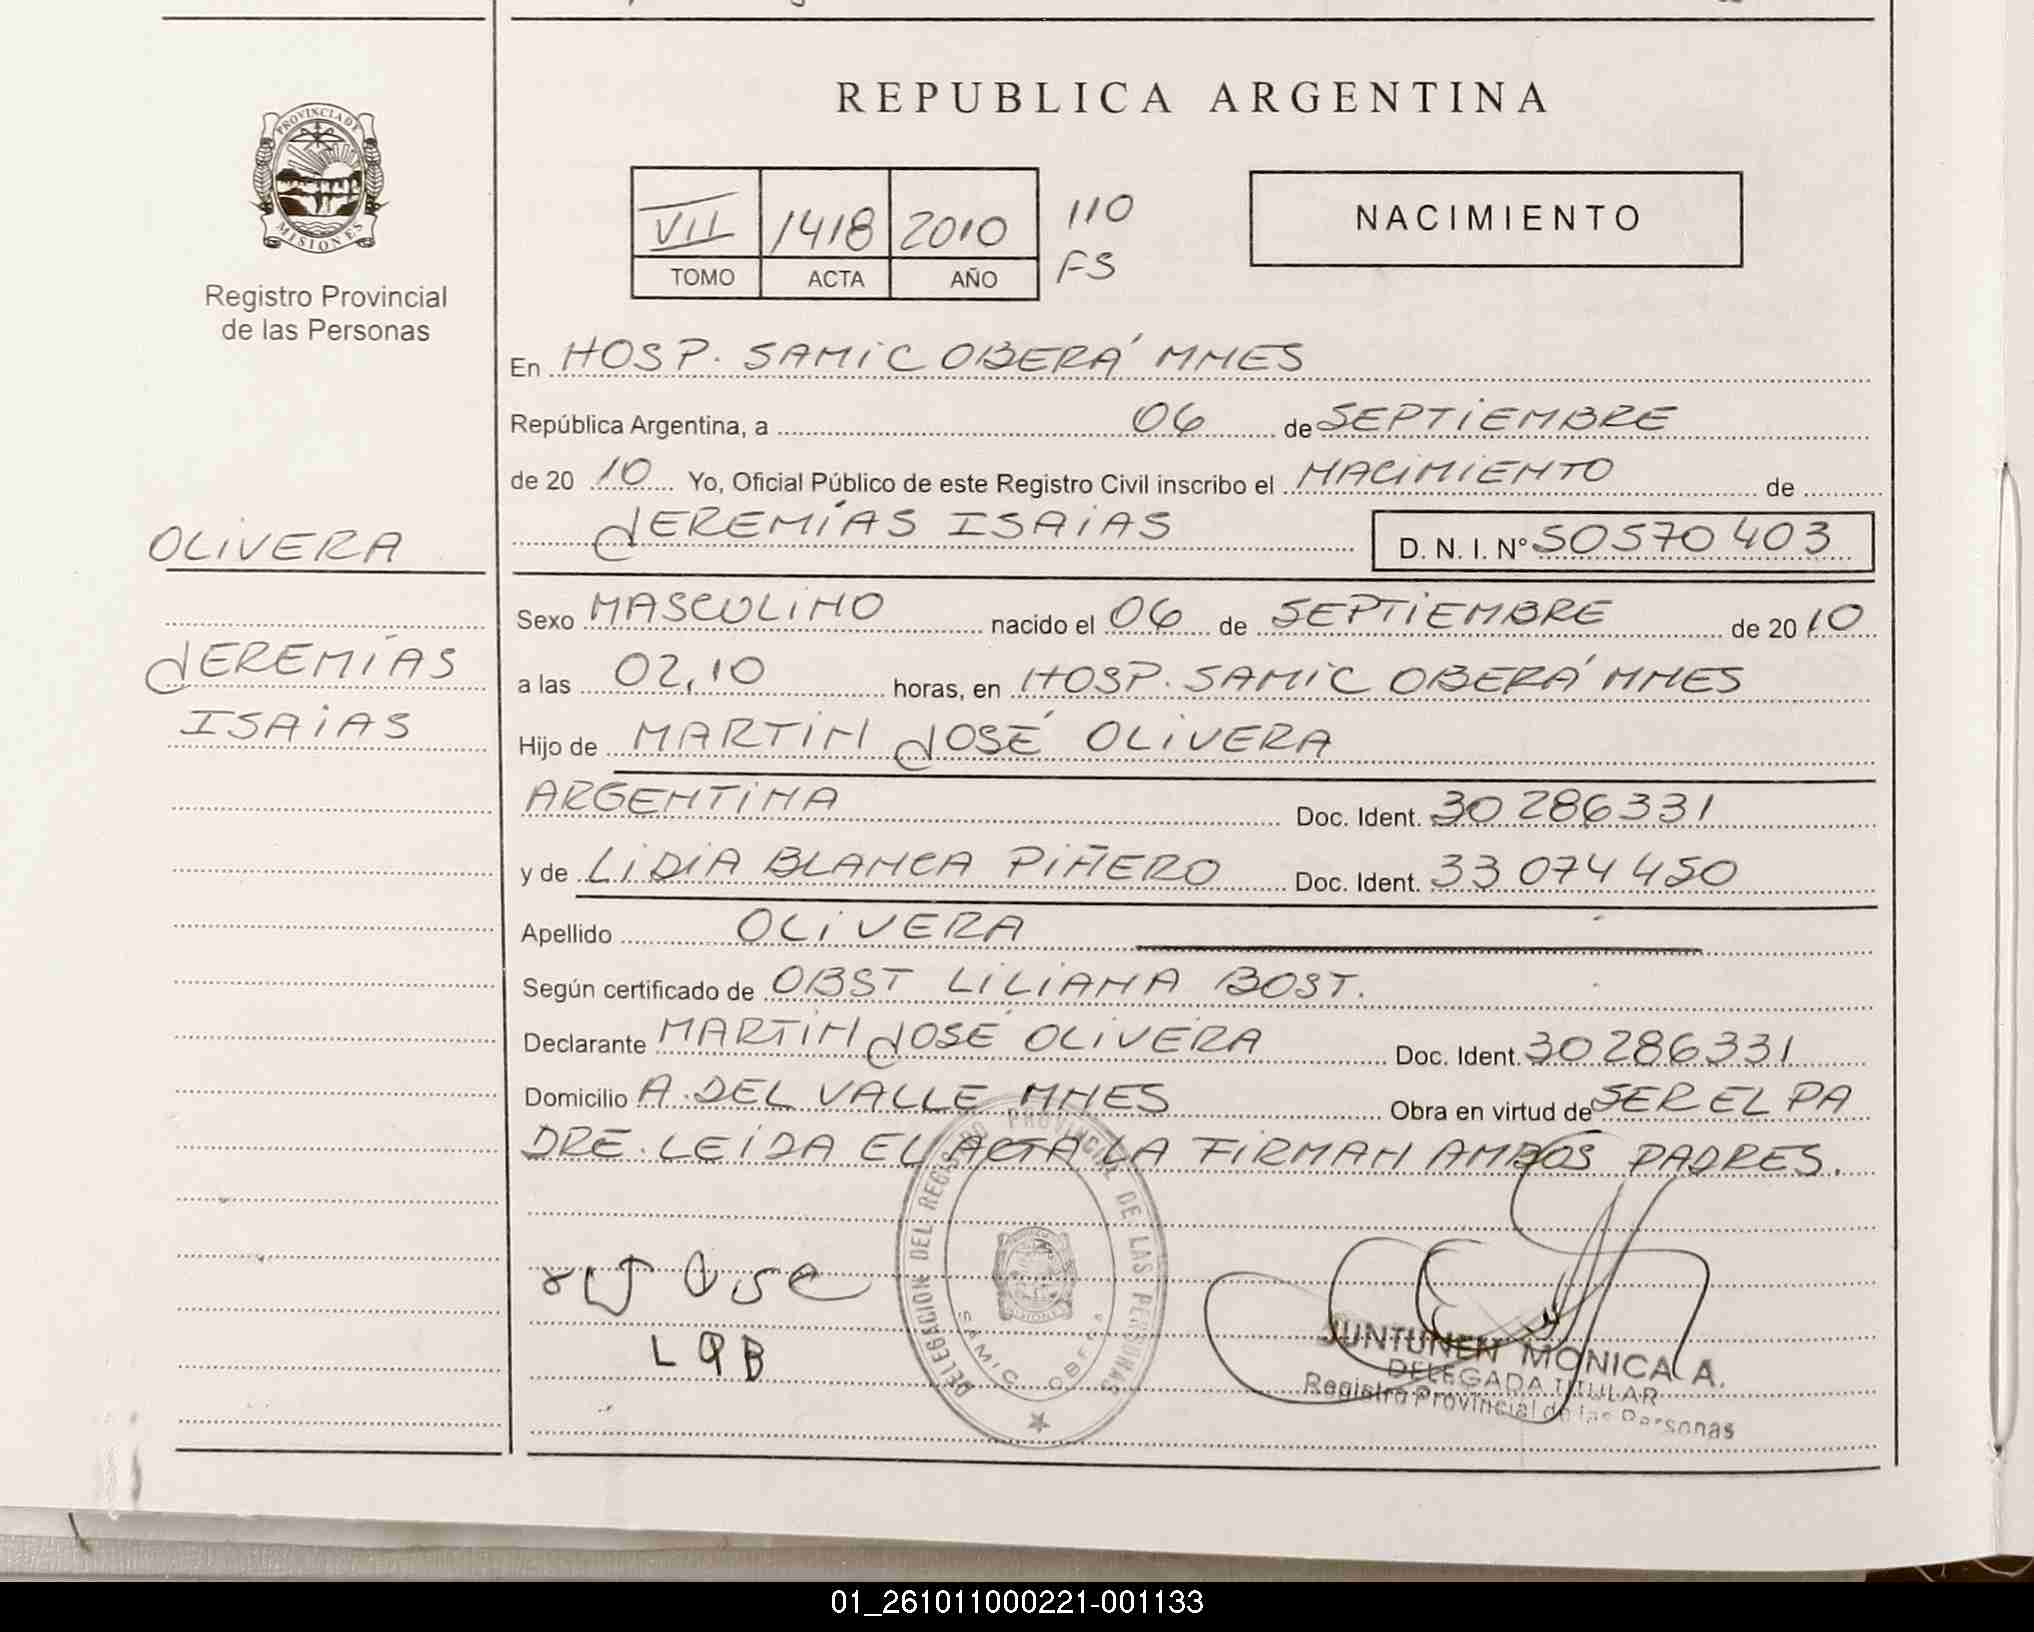 REPUBLICA ARGENTINA
PROVINCIA DE
MISIONES
Registro Provincial
de las Personas
VII 1418 2010 110
TOMO ACTA AÑO FS
NACIMIENTO
En HOSP. SAMIC OBERÁ MNES
República Argentina, a 06 de SEPTIEMBRE
de 20 10 Yo, Oficial Público de este Registro Civil inscribo el NACIMIENTO de
JEREMÍAS ISAIAS D. N. I. N° 50570403
OLIVERA
JEREMÍAS
ISAIAS
Sexo MASCULINO nacido el 06 de SEPTIEMBRE de 20 10
a las 02,10 horas, en HOSP. SAMIC OBERÁ MNES
Hijo de MARTIN JOSÉ OLIVERA
ARGENTINA Doc. Ident. 30286331
y de LIDIA BLANCA PIÑERO Doc. Ident. 33074450
Apellido OLIVERA
Según certificado de OBST LILIANA BOST.
Declarante MARTIN JOSÉ OLIVERA Doc. Ident. 30286331
Domicilio A. DEL VALLE MNES Obra en virtud de SER EL PA
DRE. LEIDA EL ACTA LA FIRMAN AMBOS PADRES.
DELEGACION DEL REGISTRO PROVINCIAL DE LAS PERSONAS
SAMIC OBERA
MISIONES
JUNTUNEN MONICA A.
DELEGADA TITULAR
Registro Provincial de las Personas
01_261011000221-001133